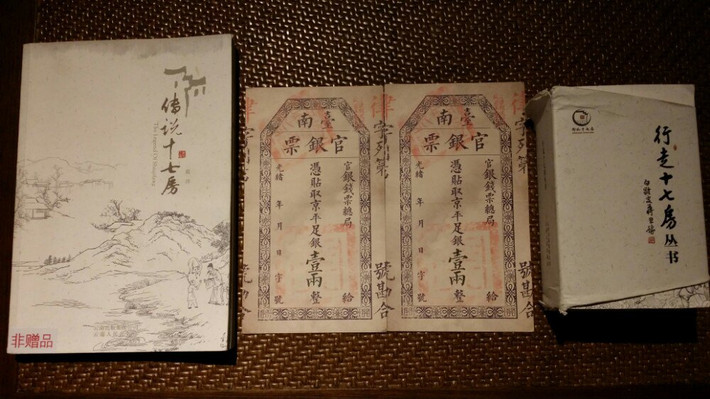 传说十七房
非赠品
臺南
官銀票
官銀錢票總局
憑貼取京平足銀壹兩整
給
光緒 年 月 日 字 號
律字列第
號勘合
臺南
官銀票
官銀錢票總局
憑貼取京平足銀壹兩整
給
光緒 年 月 日 字 號
律字列第
號勘合
行走十七房丛书